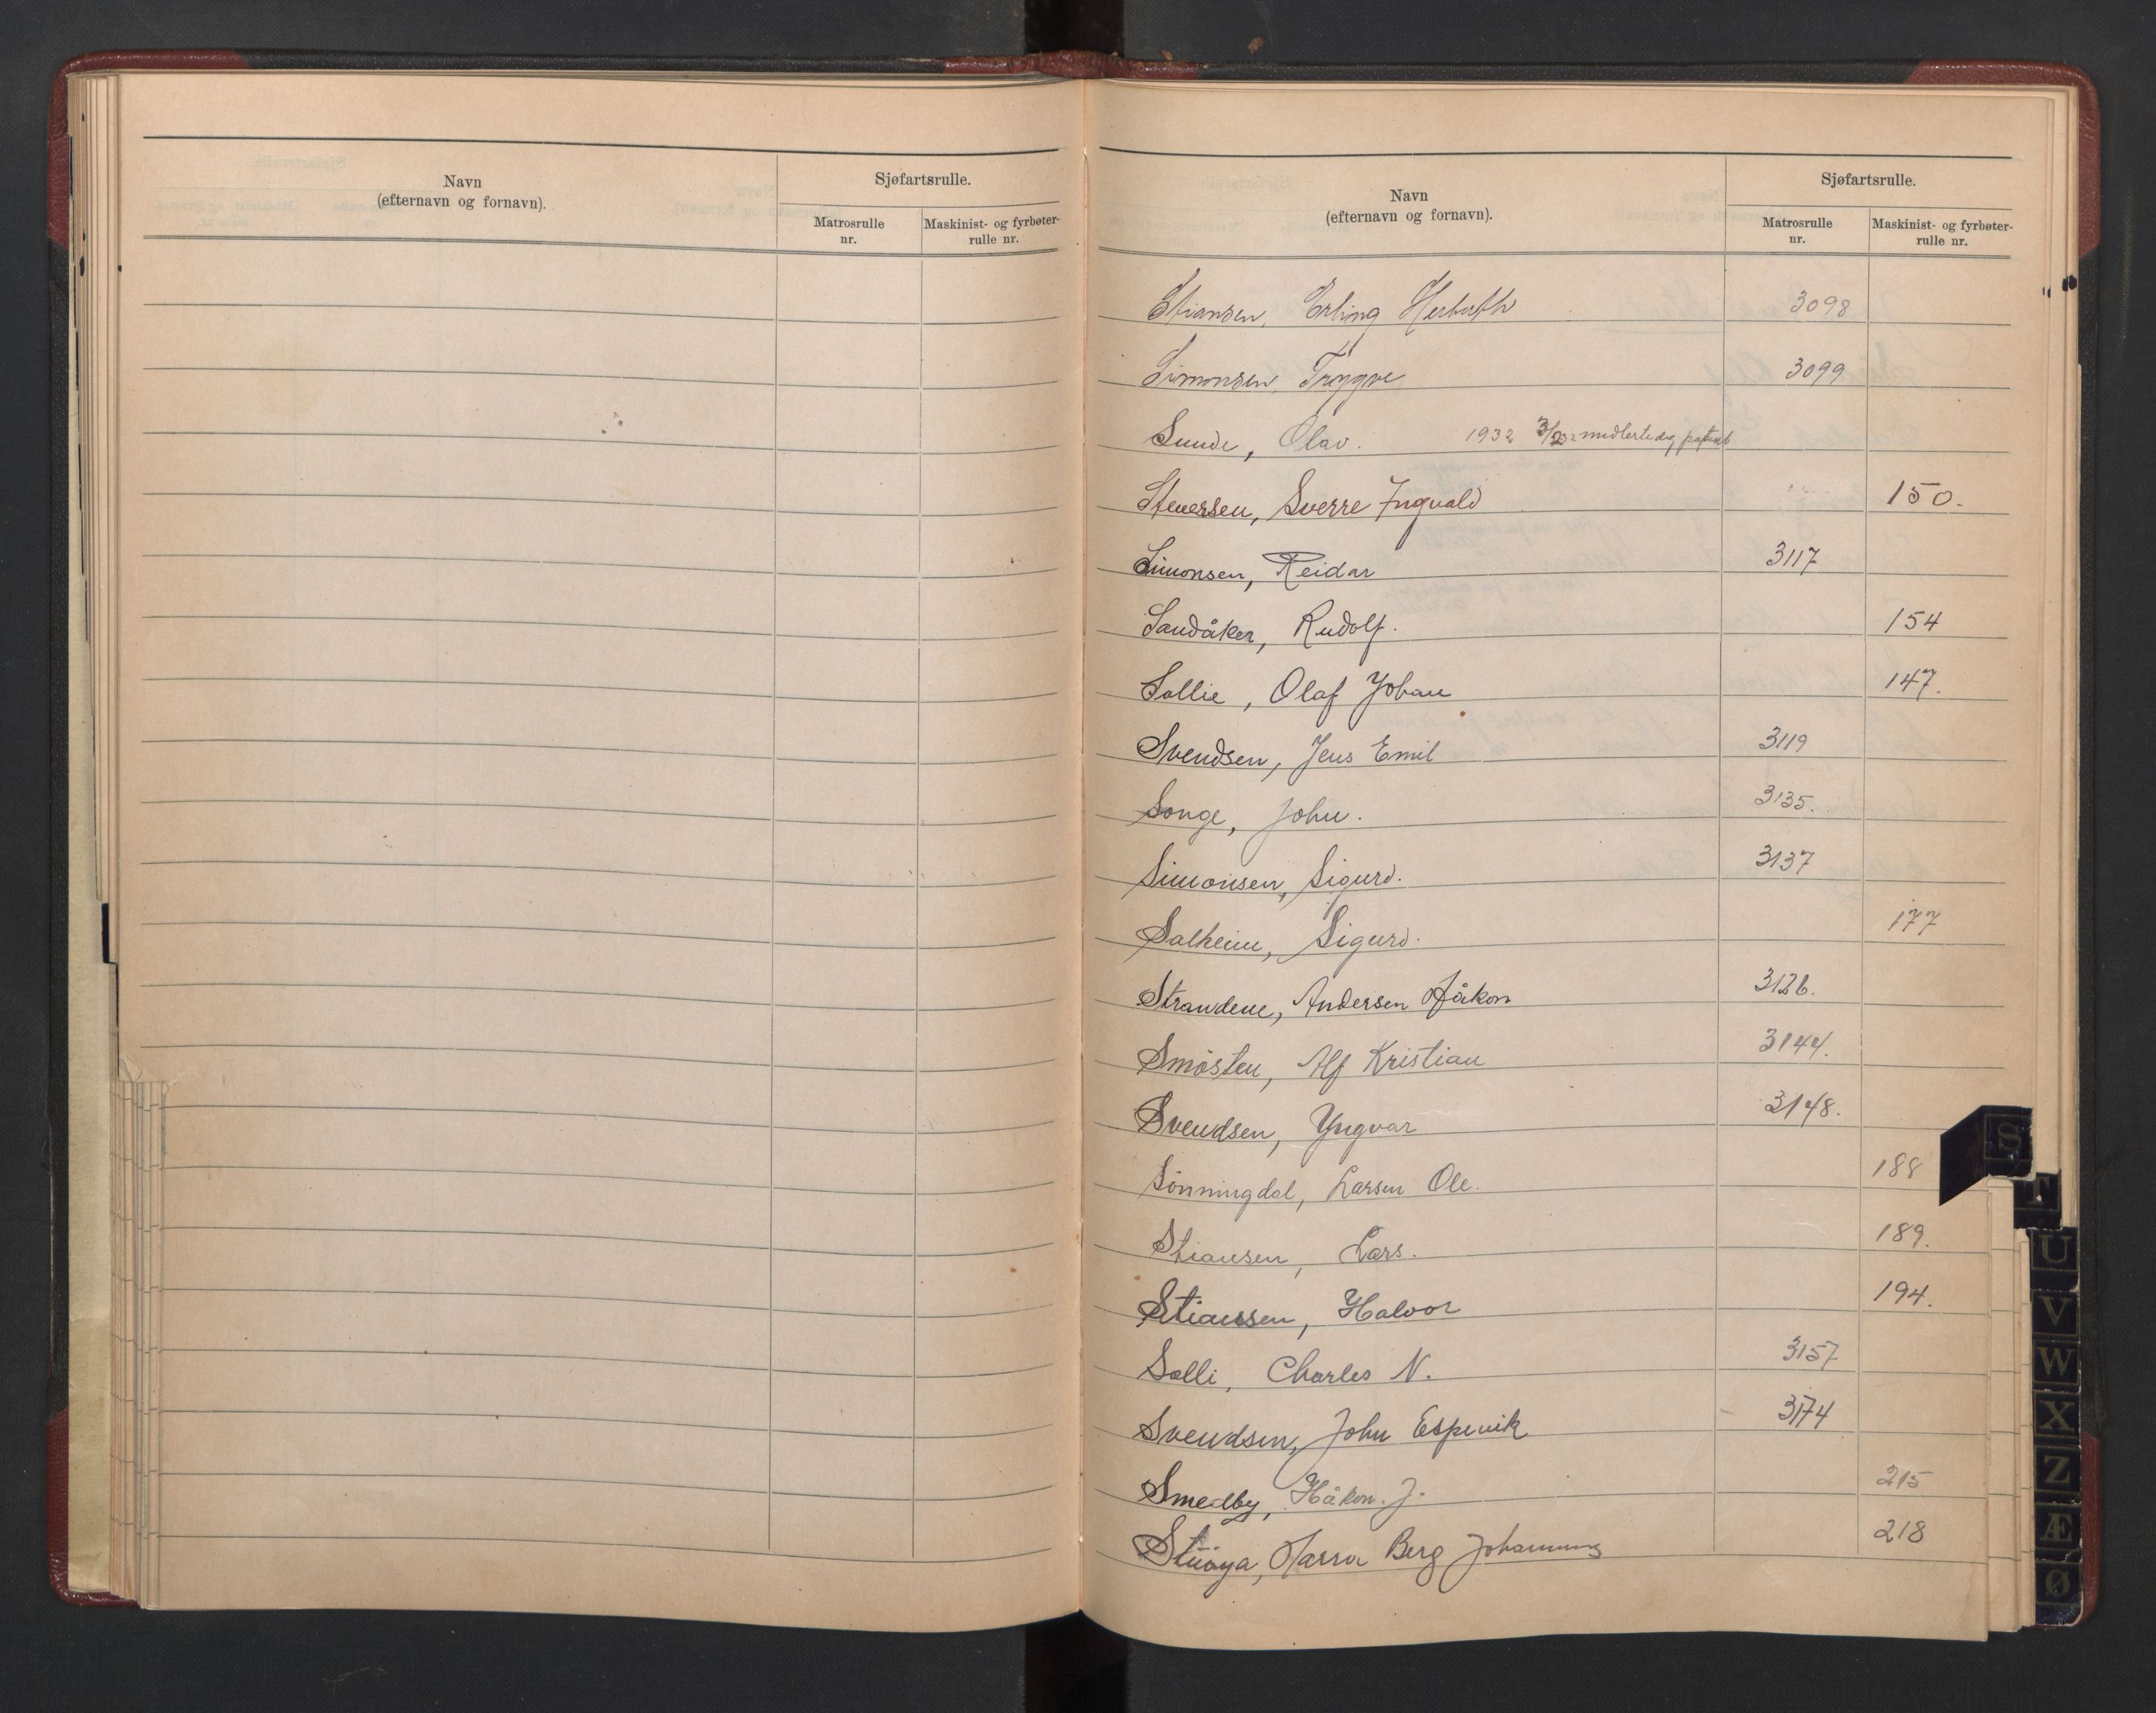 Navn
(efternavn og fornavn).
Sjøfartsrulle.
Matrosrulle
nr.
Maskinist- og fyrbøter-
rulle nr.
Navn
(efternavn og fornavn).
Sjøfartsrulle.
Matrosrulle
nr.
Maskinist- og fyrbøter-
rulle nr.
Stiansen, Erling 3098
Simonsen, Trygve 3099
Sunde, Olav. 1932
Stenersen, Sverre Ingvald 150.
Simonsen, Reidar 3117
Sandåker, Rudolf. 154
Sollie, Olaf Johan 147.
Svendsen, Jens Emil 3119
Songe, John. 3135.
Simonsen, Sigurd. 3137
Solheim, Sigurd. 177
Strandene, Andersen Håkon 3126.
Smøsten, Alf Kristian 3144.
Svendsen, Yngvar 3148.
Sønningdal, Larsen Ole. 188
Stiansen, Lars. 189.
Stianssen, Halvor 194.
Solli, Charles N. 3157
Svendsen, John Espevik 3174
Smedby, Håkon. J. 215
Berg 218
S
T
U
V
W
X
Z
Æ
Ø